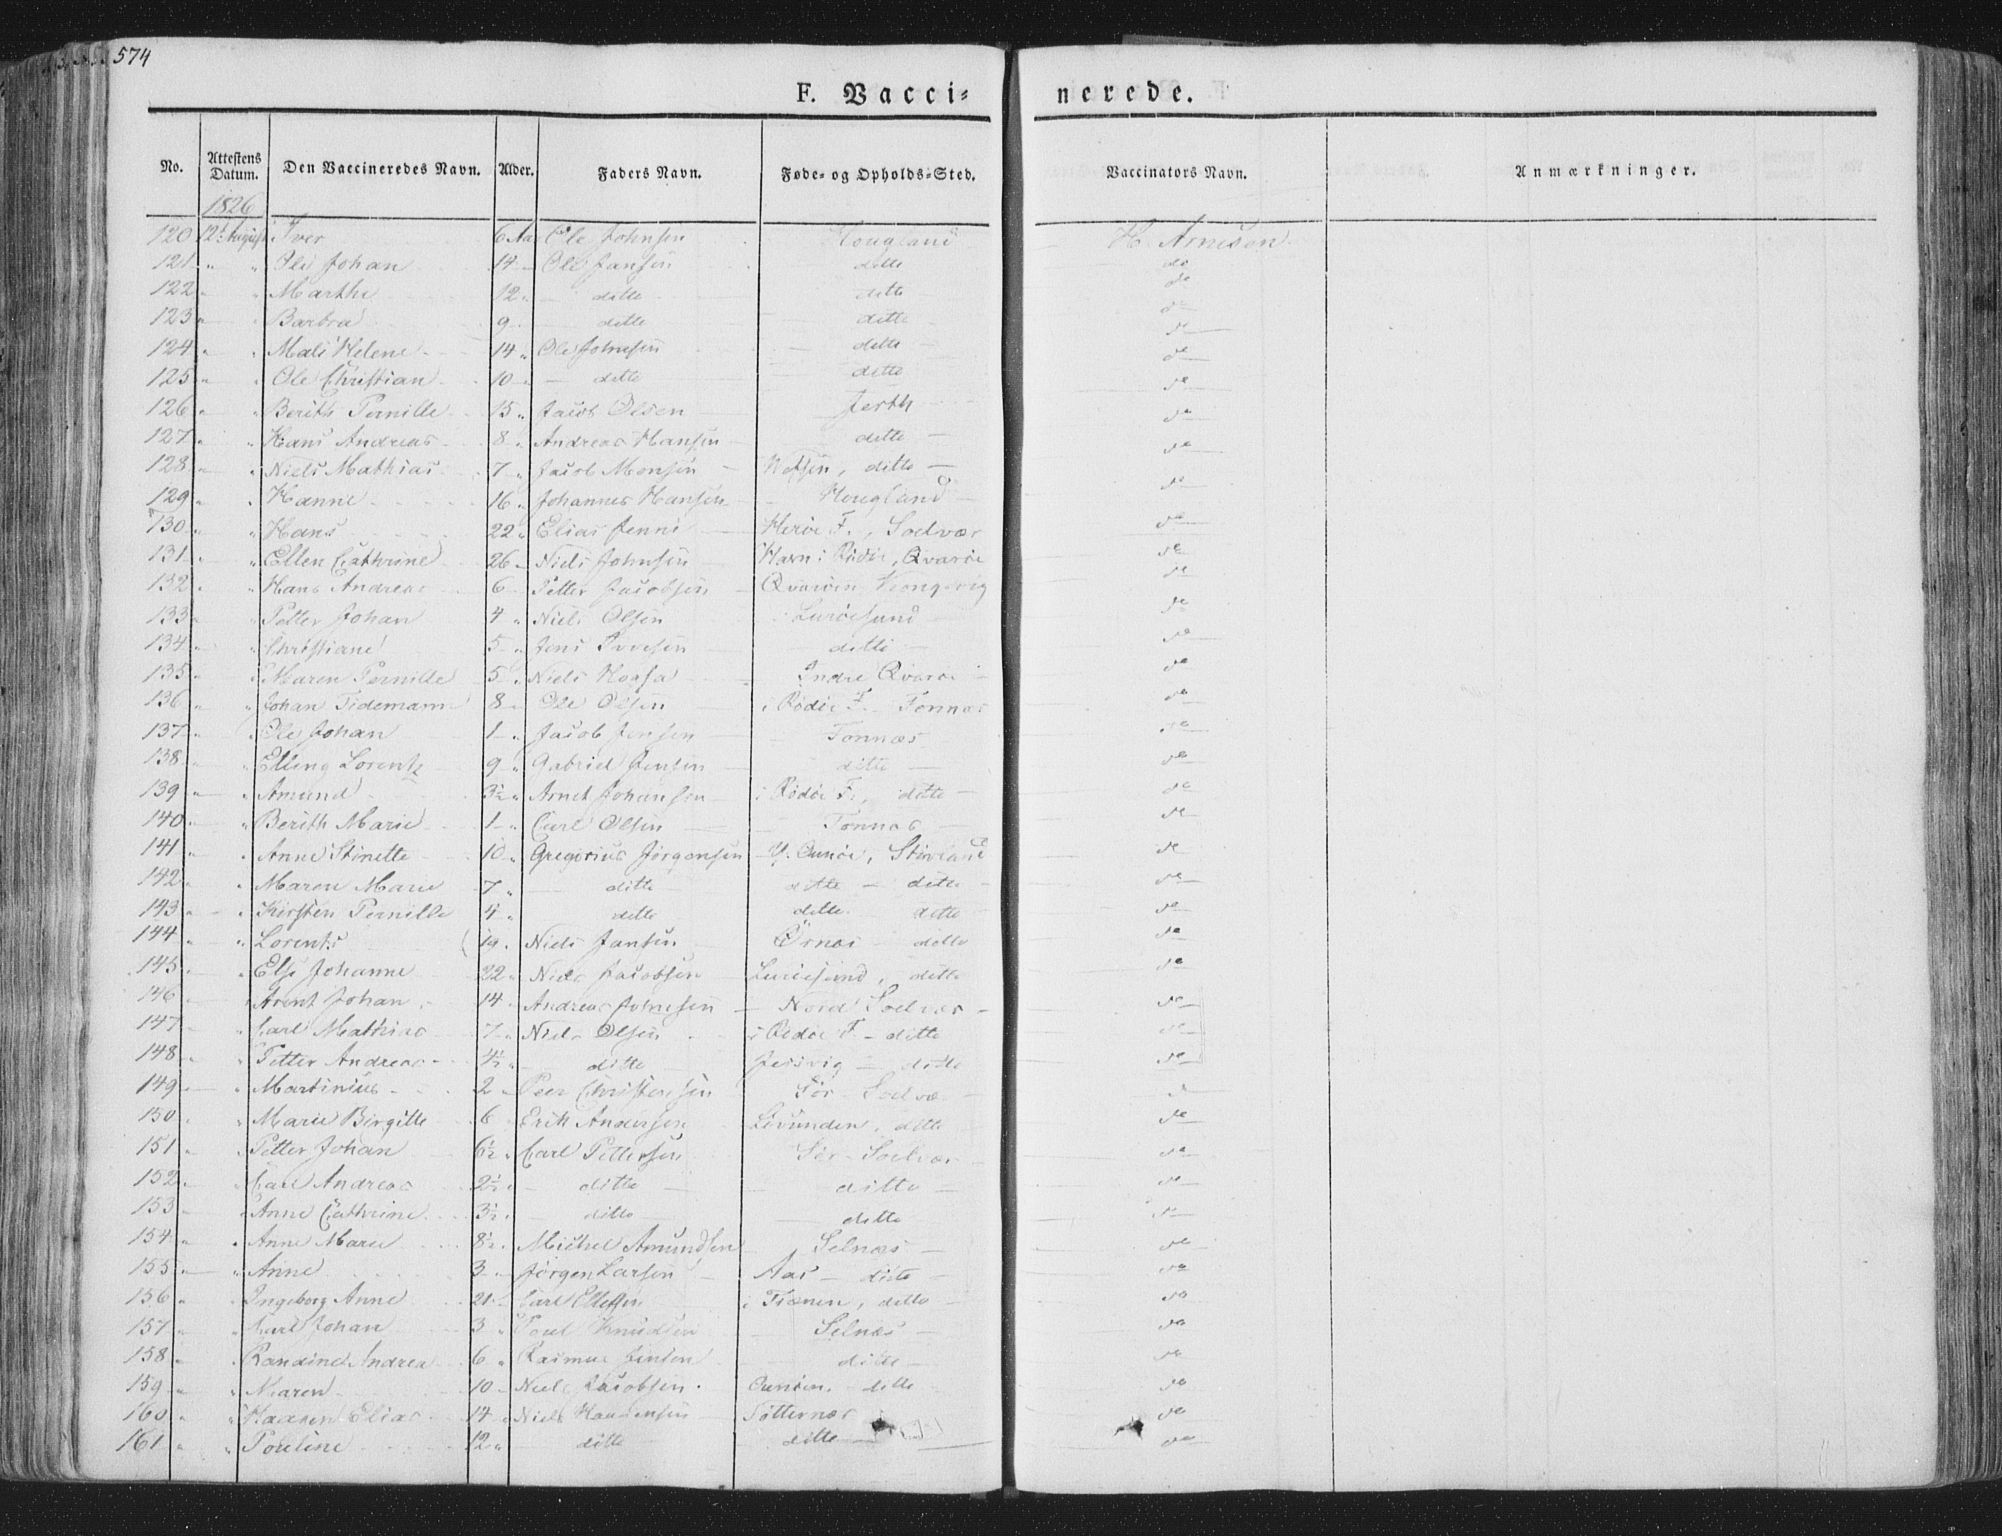 574
F. Vacci= nerede.
No. Attestens Datum. Den Vaccineredes Navn. Alder. Faders Navn. Føde- og Opholds-Sted. Vaccinators Navn. Anmærkninger.
1826
120 12te August Iver 6 Aar Ole Johnsen Hougland H. Arnesen
121 " " Ole Johan 14 Ole Jansen ditto do
122 " " Marthe 12 ditto ditto do
123 " " Barbra 9 ditto ditto do
124 " " Mali Helene 14 Ole Johnsen ditto do
125 " " Ole Christian 10 ditto ditto do
126 " " Berith Pernille 15 Jacob Olsen Jerth do
127 " " Hans Andreas 8 Andreas Hansen ditto do
128 " " Niels Mathias 7 Jacob Monsen ditto do
129 " " Hanne 16 Johannes Hansen Hougland do
130 " " Hans 22 Elias Herøe F., Soelvær do
131 " " Ellen Cathrine 26 Niels Johnsen Havn i Rødøe, Qvarøe do
132 " " Hans Andreas 6 Petter Jacobsen Qvarøen do
133 " " Petter Johan 4 Niels Olsen Lurøesund do
134 " " Christiane 5 Jens Iversen ditto do
135 " " Maren Pernille 5 Niels Indre Qvarøe do
136 " " Johan Tidemann 8 Ole Olsen i Rødøe F. Tonnæs do
137 " " Ole Johan 1 Jacob Jensen Tonnæs do
138 " " Elling Lorentz 9 Gabriel Jensen ditto do
139 " " Amund 3½ Arnet Johansen i Rødøe F., ditto do
140 " " Berith Marie 1 Carl Olsen Tonnæs do
141 " " Anne Stinette 10 Gregorius Jørgensen Y. Qunøe, Stuvland do
142 " " Maren Marie 7 ditto ditto ditto do
143 " " Kirsten Pernille 4 ditto ditto ditto do
144 " " Lorents 19 Niels Jansen Ørnæs ditto do
145 " " Else Johanne 22 Niels Jacobsen Lurøesund, ditto do
146 " " Arent Johan 14 Andreas Johnsen Nord Soelvær do
147 " " Carl Mathias 7 Niels Olsen i Rødøe F. ditto do
148 " " Petter Andreas 4½ ditto ditto do
149 " " Martinius 2 Peer Christensen Sør Soelvæ do
150 " " Marie Birgitte 6 Erik Andersen Lovunden, ditto do
151 " " Petter Johan 6½ Carl Pettersen Sør Soelvær do
152 " " Carl Andreas 2½ ditto ditto do
153 " " Anne Cathrine 3½ ditto ditto do
154 " " Anne Marie 8½ Michel Amundsen Selnæs do
155 " " Anne 3 Jørgen Larsen Aas ditto do
156 " " Ingeborg Anne 21 Carl Ellefsen i Trænen, ditto do
157 " " Carl Johan 3 Poul Knudsen Selnæs do
158 " " Randine Andrea 6 Rasmus Jensen ditto do
159 " " Maren 10 Niels Jacobsen ditto do
160 " " Haagen Elias 14 Niels Haagensen Søtternær do
161 " " Pouline 12 ditto ditto do